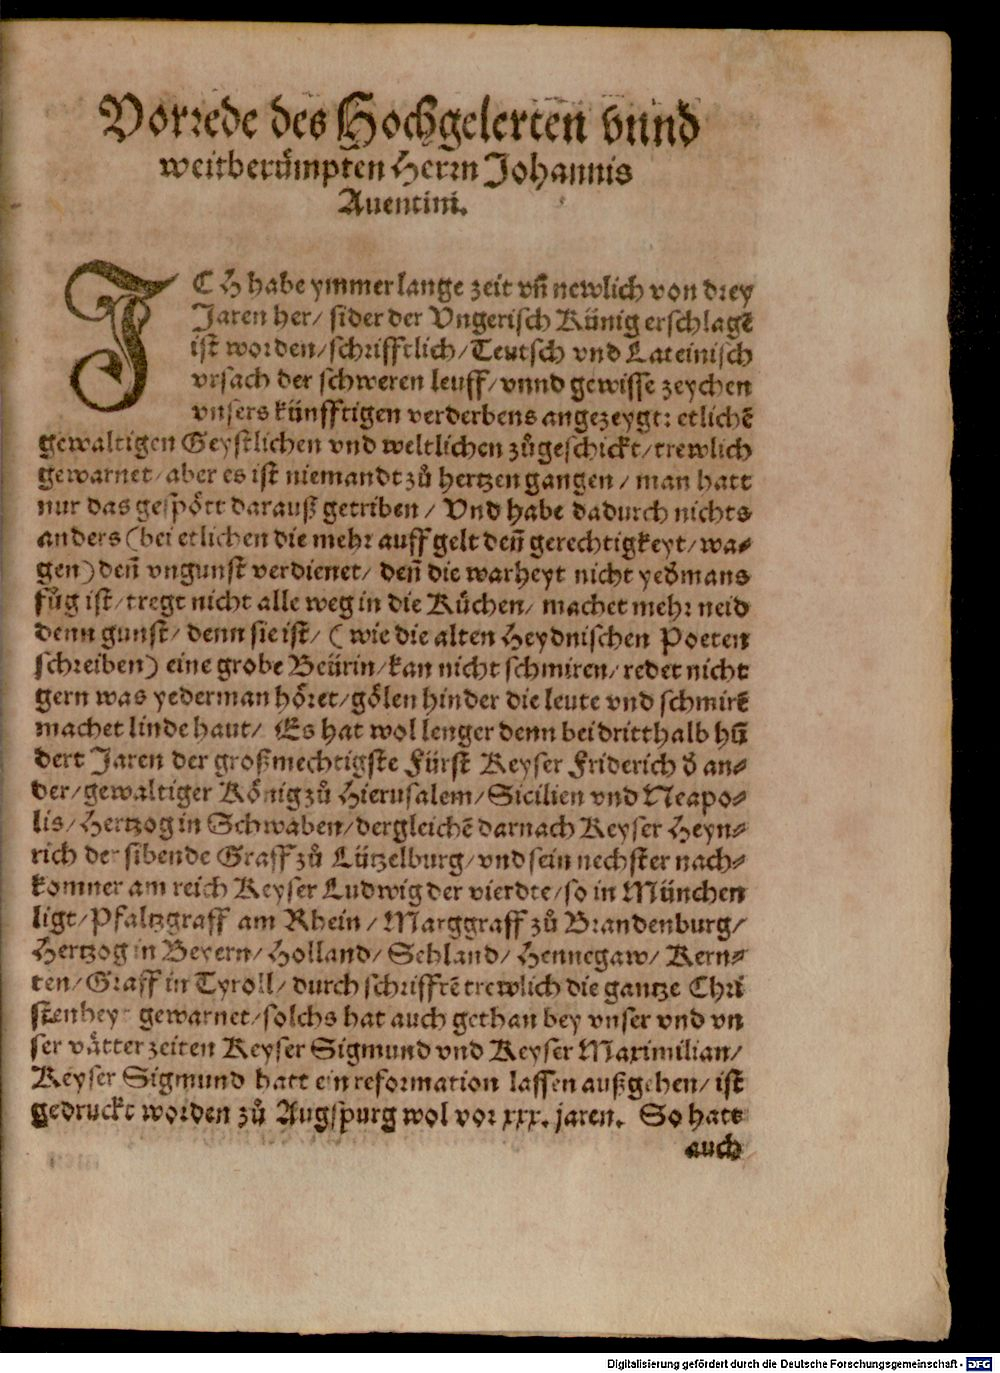 Vorrede des Hochgelerten vnnd
weitberůmpten Herrn Johannis
Auentini.
ICH habe ymmer lange zeit vñ newlich von drey
Jaren her/ sider der Vngerisch Künig erschlagē
ist worden/schrifftlich/Teutsch vnd Lateinisch
vrsach der schweren leuff/vnnd gewisse zeychen
vnsers künfftigen verderbens angezeygt: etlichē
gewaltigen Geystlichen vnd weltlichen zůgeschickt/trewlich
gewarnet/aber es ist niemandt zů hertzen gangen/ man hatt
nur das gespött darauß getriben/ Vnd habe dadurch nichts
anders (bei etlichen die mehr auff gelt deñ gerechtigkeyt/wa-
gen) deñ vngunst verdienet/ deñ die warheyt nicht yeđmans
fůg ist/tregt nicht alle weg in die Küchen/ machet mehr neid
denn gunst/ denn sie ist/ (wie die alten Heydnischen Poeten
schreiben) eine grobe Beürin/kan nicht schmiren/redet nicht
gern was yederman höret/gölen hinder die leute vnd schmirē
machet linde haut/ Es hat wol lenger denn bei dritthalb hũ
dert Jaren der großmechtigste Fürst Keyser Friderich đ an-
der/gewaltiger König zů Hierusalem/Sicilien vnd Neapo-
lis/Hertzog in Schwaben/dergleichē darnach Keyser Heyn-
rich der sibende Graff zů Lützelburg/vnd sein nechster nach-
komner am reich Keyser Ludwig der vierdte/so in München
ligt/Pfaltzgraff am Rhein/Marggraff zů Brandenburg/
Hertzog in Beyern/Holland/Sehland/Hennegaw/Kern-
ten/Graff in Tyroll/ durch schrifftē trewlich die gantze Chri
stenhey gewarnet/solchs hat auch gethan bey vnser vnd vn
ser vätter zeiten Keyser Sigmund vnd Keyser Maximilian/
Keyser Sigmund hatt ein reformation lassen außgehen/ ist
gedruckt worden zů Augspurg wol vor xxx. jaren. So hatt
auch
Digitalisierung gefördert durch die Deutsche Forschungsgemeinschaft - DFG